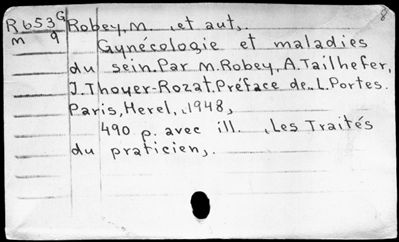 8
R653G Robey, M et aut.
m 9 Gynécologie et maladies
du sein. Par M. Robey, A. Tailhefer,
J. Thoyer-Rozat. Préface de L. Portes.
Paris, Herel, 1948,
490 p. avec ill. Les Traités
du praticien,.